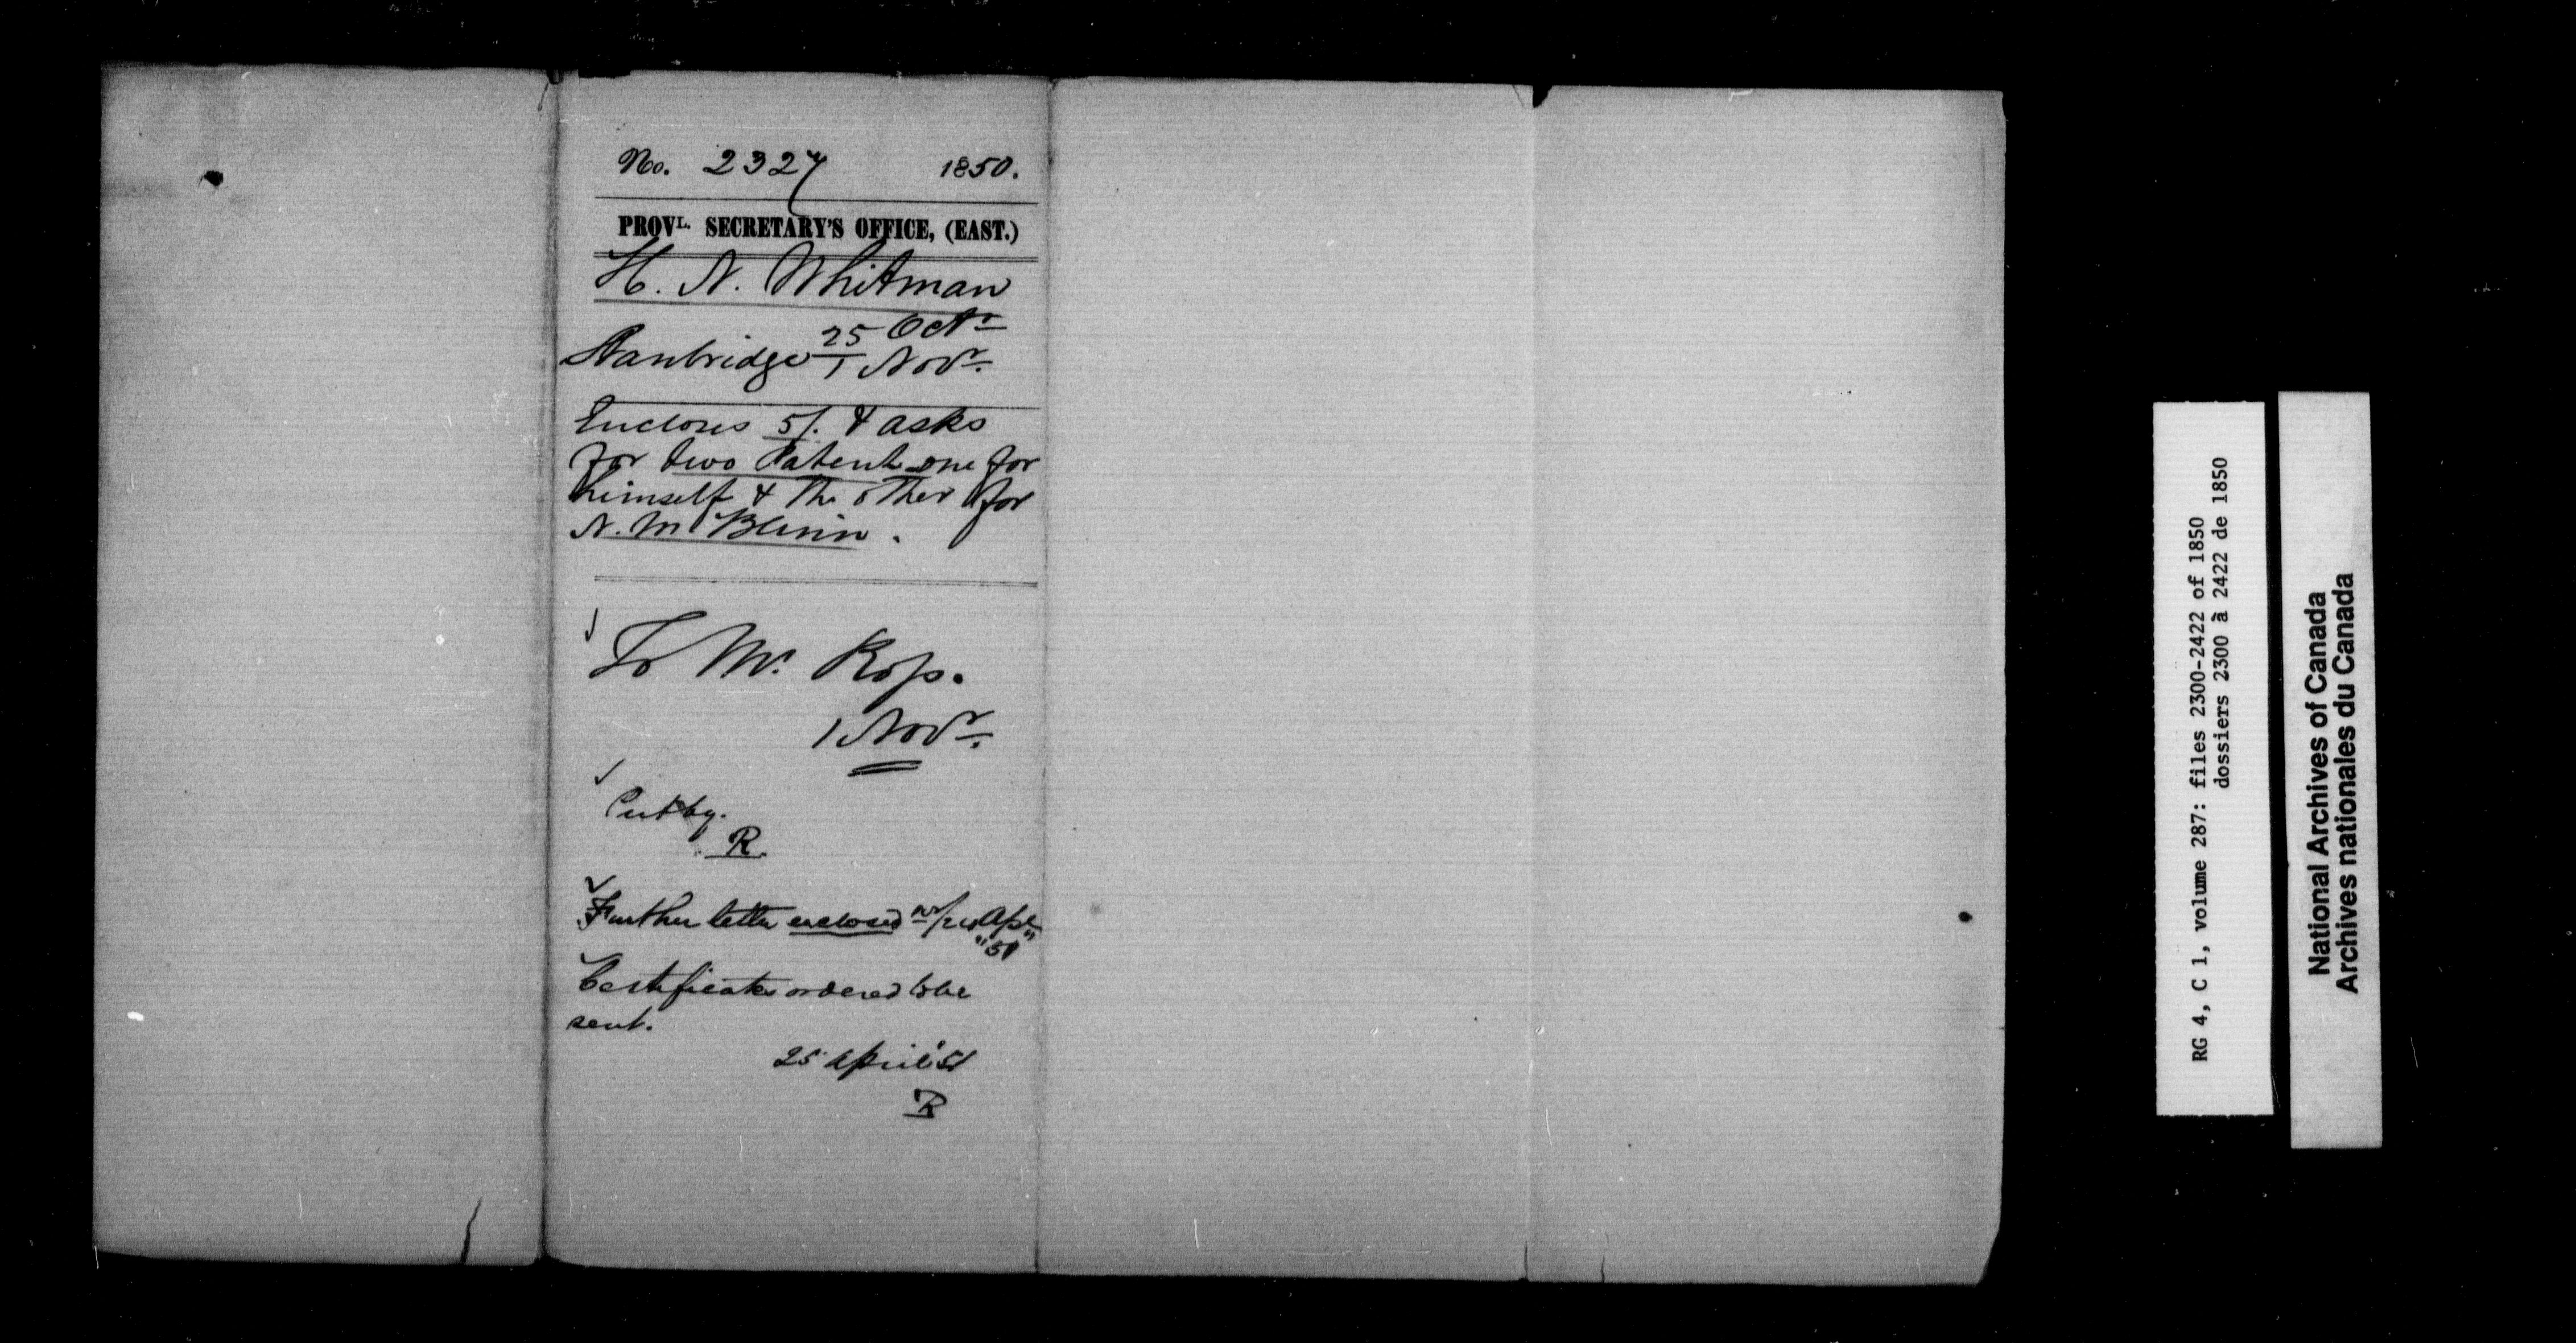 No. 2327 1850.
PROVL. SECRETARY'S OFFICE, (EAST.)
H. N. Whitman
Stanbridge 25 Octr
1 Novr.
Encloses 5/. & asks
for two Patent one for
himself & the other for
N. M Blinn.
To Mr. Ross.
1 Novr.
Put by.
R.
Further letter enclosed Apl
"51"
Certificates ordered to be
sent.
25 April '51
R
RG 4, C 1, volume 287: files 2300-2422 of 1850
dossiers 2300 à 2422 de 1850
National Archives of Canada
Archives nationales du Canada